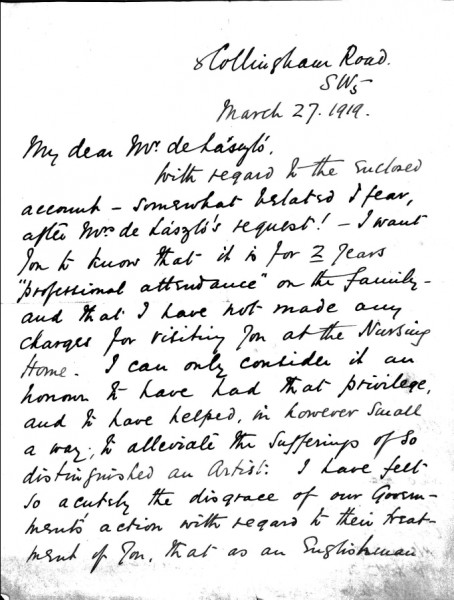 8 Collingham Road.
SW5
March 27. 1919.
My dear Mr. de László,
With regard to the enclosed
account – somewhat belated I fear,
after Mrs de László's request! – I want
you to know that it is for 2 years
"professional attendance" on the family –
and that I have not made any
charges for visiting you at the Nursing
Home. I can only consider it an
honour to have had that privilege,
and to have helped, in however small
a way, to alleviate the sufferings of so
distinguished an Artist: I have felt
so acutely the disgrace of our Govern-
ment's action with regard to their treat-
ment of you, that as an Englishman